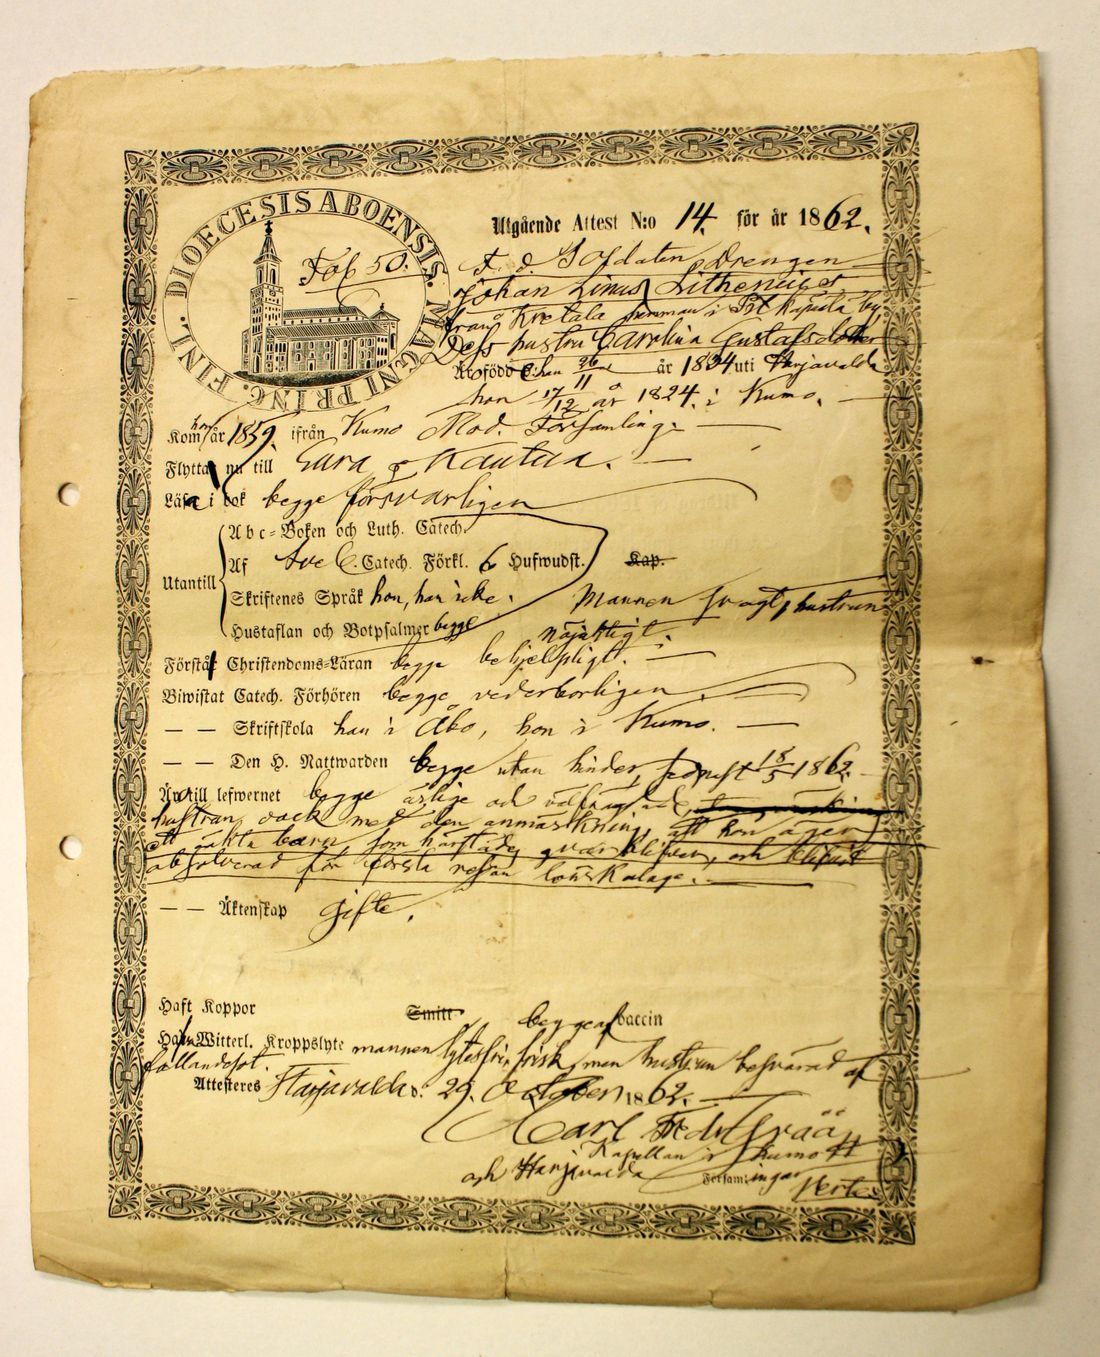 DIOECESIS ABOENSIS. MAGNI PRINC. FINL.
Fol 50.
Utgående Attest N:o 14. för år 1862.
F. d. Soldaten Drengen
Johan Linus
från Kretala i St Kajula by
Dess hustru Carolina Gustafsdotter
Är född han 26/11 år 1834 uti Harjavalda
hon 17/12 år 1824. i Kumo.
Kom hon år 1859. ifrån Kumo Mod. Församling.
Flytta nu till Eura Kauttua.
Läsa i bok begge försvarligen
Utantill
Abc-Boken och Luth. Catech.
Af Sve C. Catech. Förkl. 6 Hufwudst. Kap.
Skriftenes Språk hon, han icke. Mannen svagt, hustrun
Hustaflan och Botpsalmer begge nöjaktigt.
Förstå Christendoms-Läran begge behjelpligt.
Biwistat Catech. Förhören begge vederbörligen.
— — Skriftskola han i Åbo, hon i Kumo.
— — Den H. Nattwarden begge utan hinder, sednast 18/5 1862.
Är till lefwernet begge ärlige och välfräjdade,
hustrun dock med den anmärkning, att hon äger
ett oäkta barn, som härstädes qvarblifver, och blifvit
absolverad för första resan lönskaläge.
— — Äktenskap gifte.
Haft Koppor Smitt begge af vaccin
Hafva Witterl. Kroppslyte mannen lytesfri, frisk, men hustrun besvärad af
fallandesot.
Attesteres Harjavalda d. 29. October 1862.
Carl Fredr
Kapellan i Kumo
och Harjavalda Församlingar